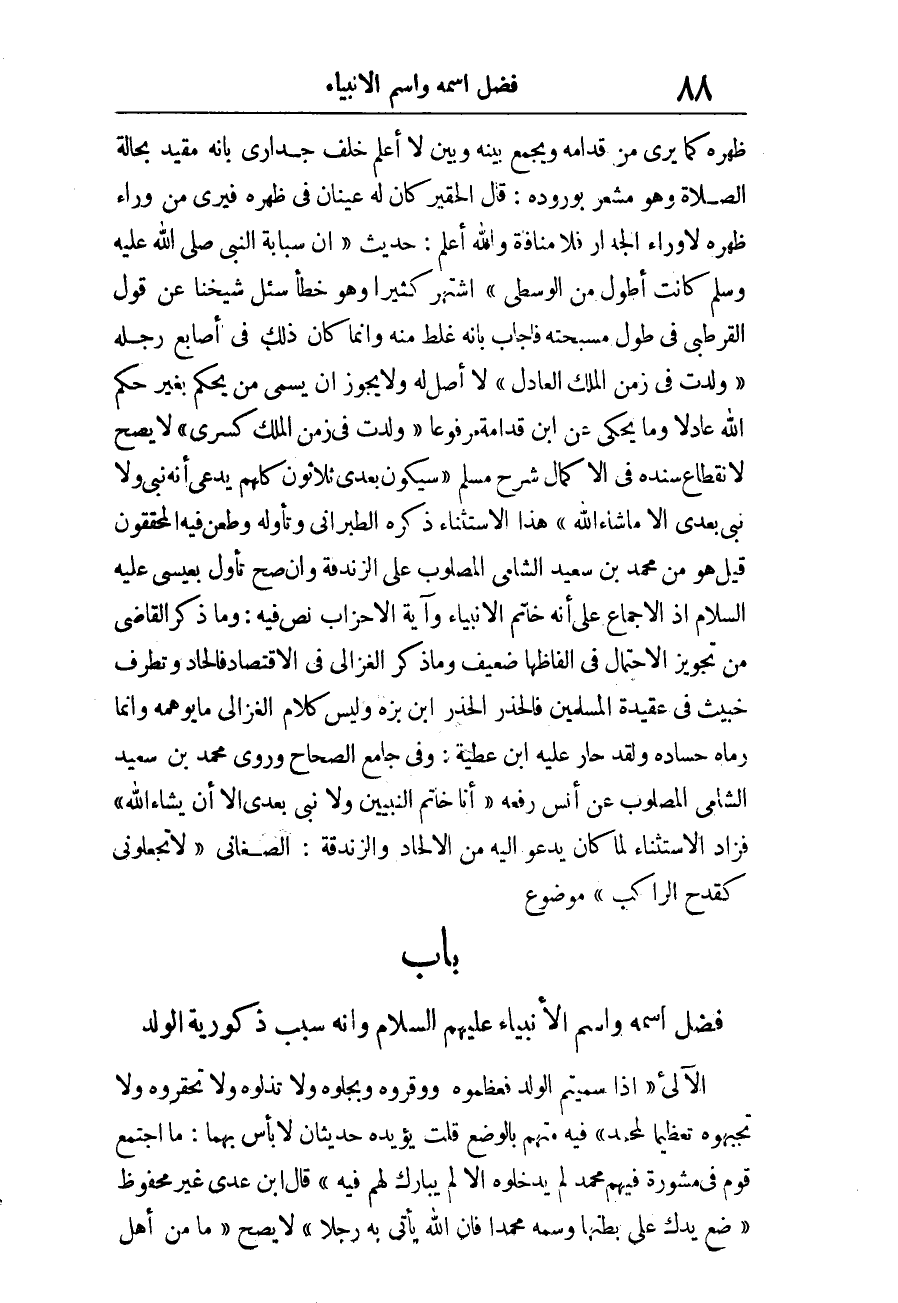 ٨٨ فضل اسمه واسم الانبياء
ظهره كما يرى من قدامه ويجمع بينه وبين لا أعلم خلف جدارى بانه مقيد بحالة
الصلاة وهو مشعر بوروده : قال الحقير كان له عينان فى ظهره فيرى من وراء
ظهره لاوراء الجدار فلا منافاة والله أعلم : حديث « ان سبابة النبى صلى الله عليه
وسلم كانت أطول من الوسطى » اشتهر كثيرا وهو خطأ سئل شيخنا عن قول
القرطبى فى طول مسبحته فاجاب بانه غلط منه وانما كان ذلك فى أصابع رجله
« ولدت فى زمن الملك العادل » لا أصل له ولايجوز ان يسمى من يحكم بغير حكم
الله عادلا وما يحكى عن ابن قدامة مرفوعا « ولدت فى زمن الملك كسرى» لا يصح
لانقطاع سنده فى الا كمال شرح مسلم «سيكون بعدى ثلاثون كلهم يدعى أنه نبى ولا
نبى بعدى الا ماشاء الله » هذا الاستثناء ذكره الطبرانى وتأوله وطعن فيه المحققون
قيل هو من محمد بن سعيد الشامى المصلوب على الزندقة وان صح تأول بعيسى عليه
السلام اذ الاجماع على أنه خاتم الانبياء وآية الاحزاب نص فيه : وما ذكر القاضى
من تجويز الاحتمال فى الفاظها ضعيف وماذكر الغزالى فى الاقتصاد فالحاد وتطرف
خبيث فى عقيدة المسلمين فالحذر الحذر ابن بزه وليس كلام الغزالى مايوهمه وانما
رماه حساده ولقد حار عليه ابن عطية : وفى جامع الصحاح وروى محمد بن سعيد
الشامى المصلوب عن أنس رفعه « أنا خاتم النبيين ولا نبى بعدى الا أن يشاء الله»
فزاد الاستثناء لما كان يدعو اليه من الالحاد والزندقة : الصغانى « لاتجعلونى
كقدح الراكب » موضوع
باب
فضل اسمه واسم الأنبياء عليهم السلام وانه سبب ذكورية الولد
الآلئ « اذا سميتم الولد فعظموه ووقروه وبجلوه ولا تذلوه ولا تحقروه ولا
تجبهوه تعظيما لمحمد» فيه متهم بالوضع قلت يؤيده حديثان لابأس بهما : ما اجتمع
قوم فى مشورة فيهم محمد لم يدخلوه الا لم يبارك لهم فيه » قال ابن عدى غير محفوظ
« ضع يدك على بطنها وسمه محمدا فان الله يأتى به رجلا » لا يصح « ما من أهل